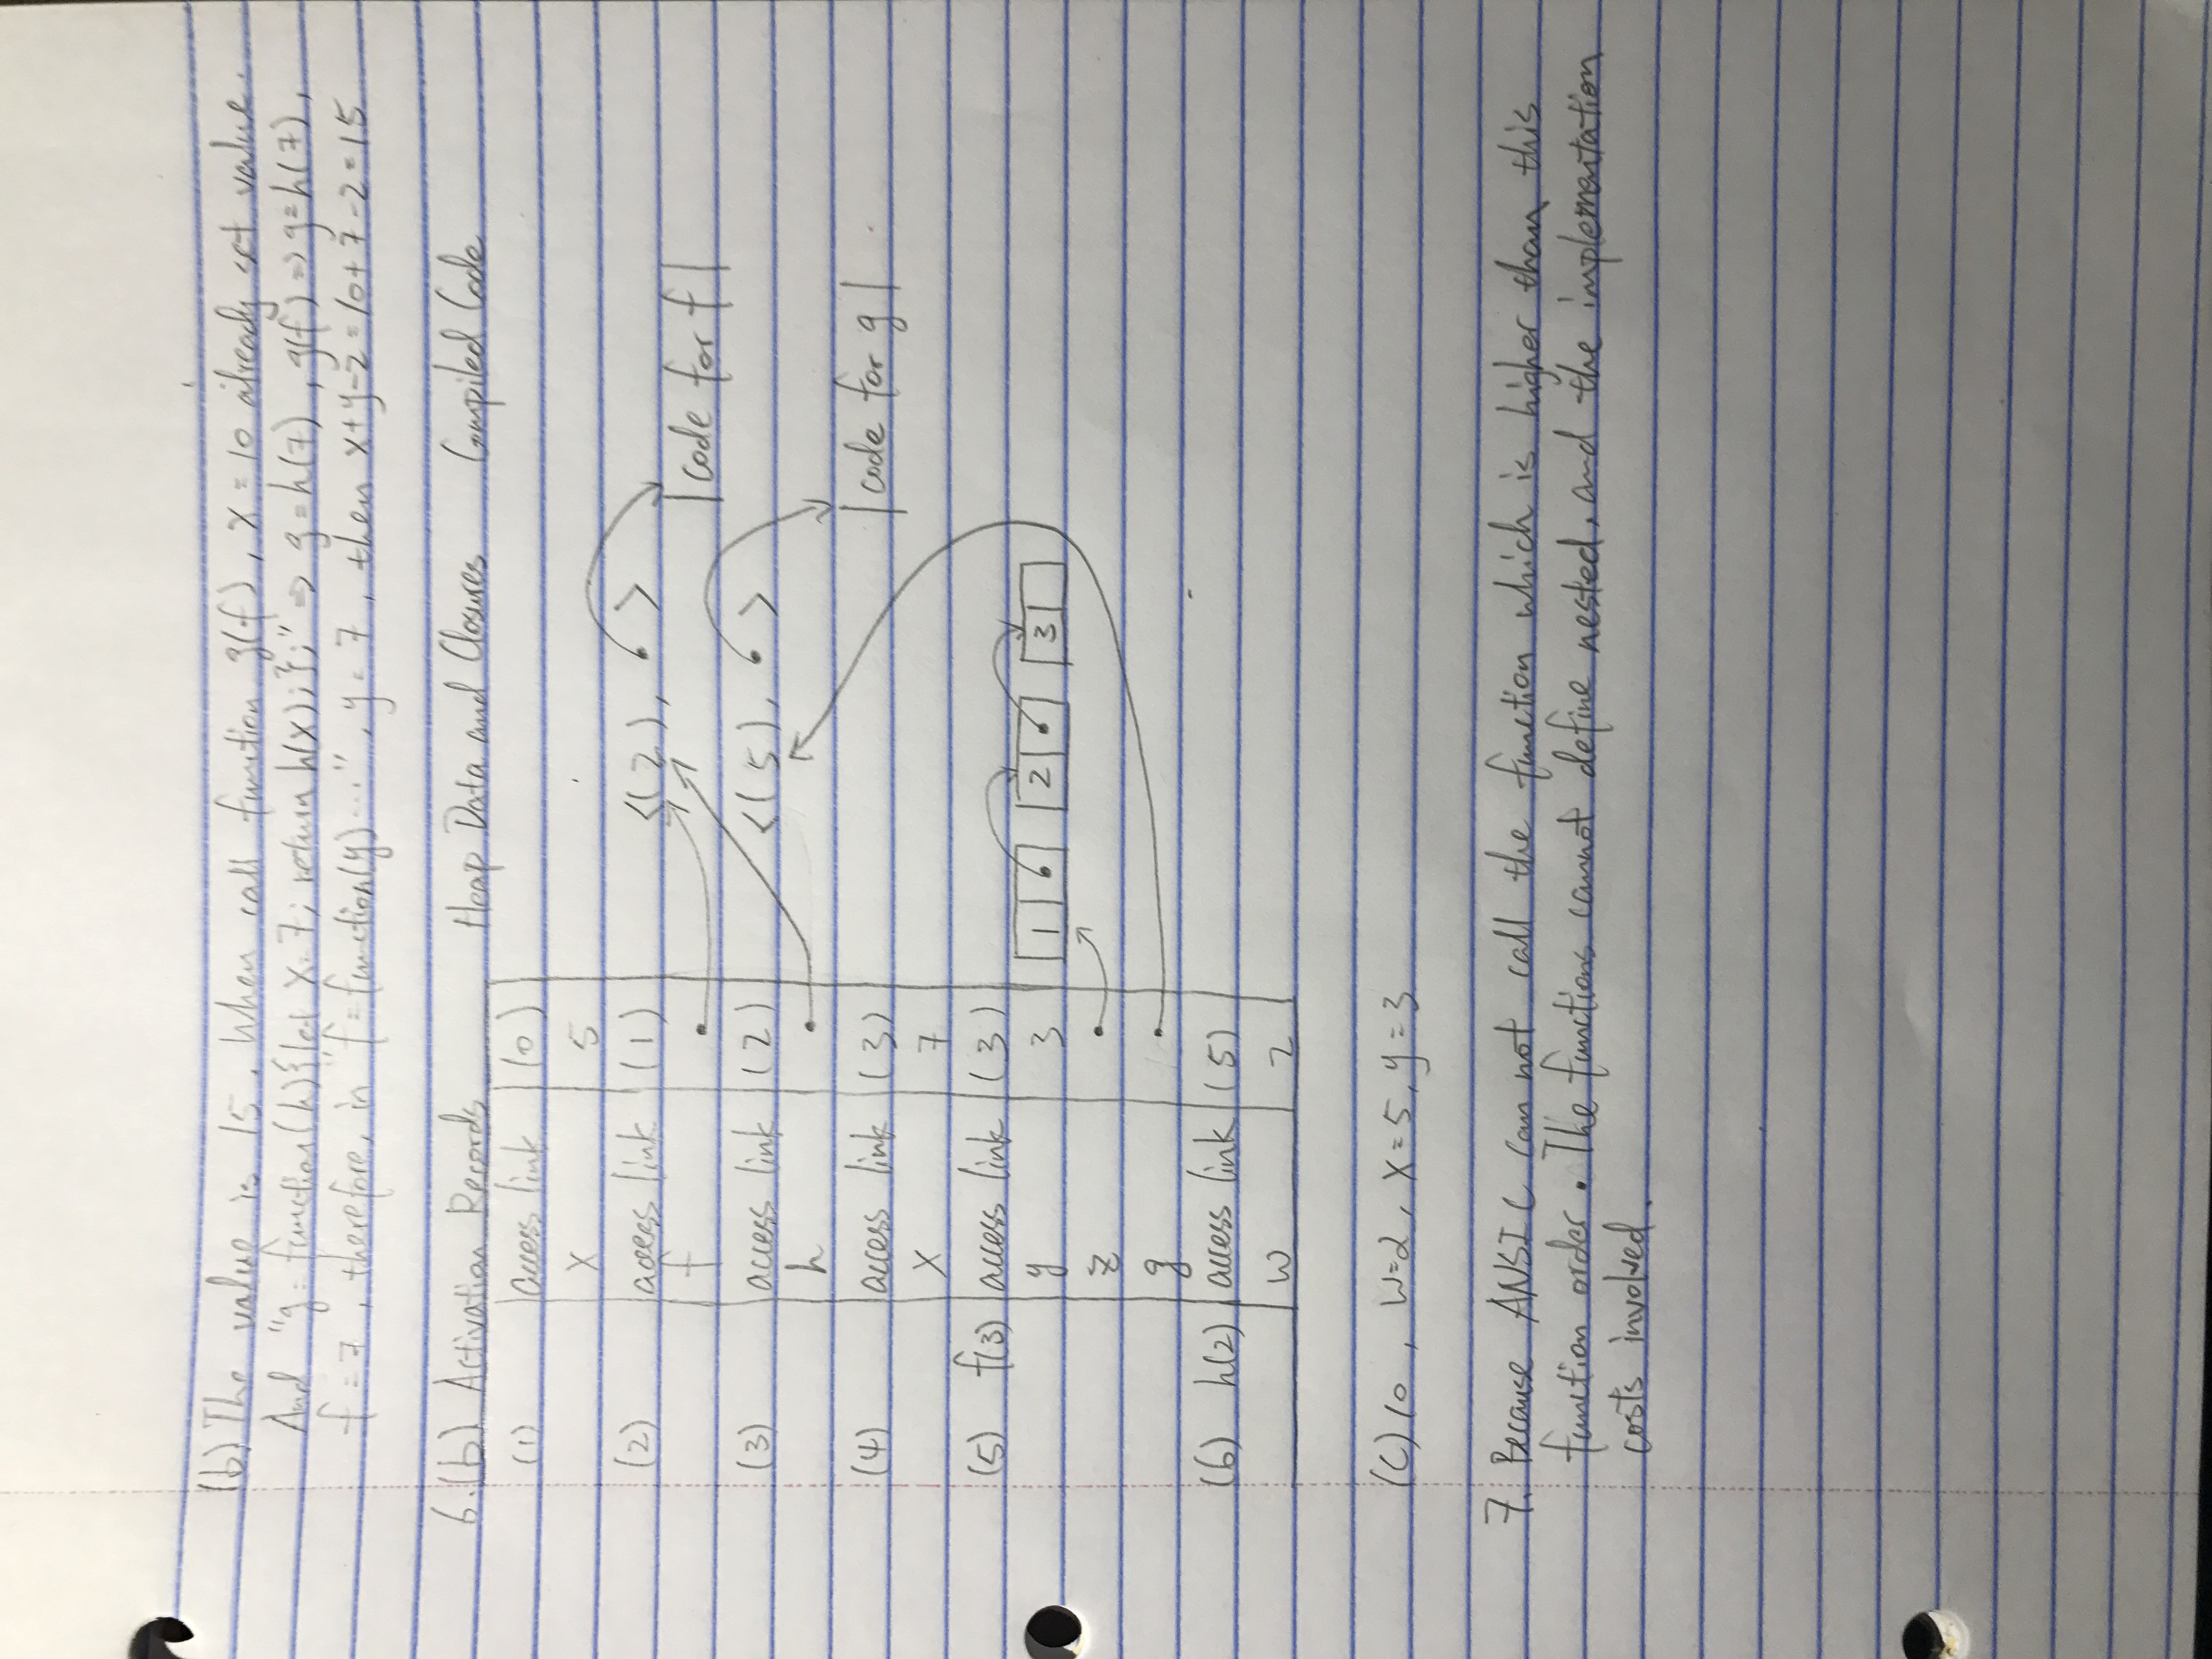 (b) The value is 15. When call function g(f), x=10 already set value.
And "g=function(h){let x=7; return h(x);};" => g=h(7), g(f)=>g=h(7),
f=7, therefore, in "f=function(y)...", y=7, then x+y-2=10+7-2=15
6.(b) Activation Records Heap Data and Closures Compiled Code
(1) access link (0)
x 5
(2) access link (1) <(2), • >
f • |code for f|
(3) access link (2) <(5), • >
h •
(4) access link (3) |code for g|
x 7
(5) f(3) access link (3)
y 3 1 • 2 • 3
z •
g •
(6) h(2) access link (5)
w 2
(C) 10, W=2, X=5, y=3
7. Because ANSI C can not call the function which is higher than this
function order. The functions cannot define nested, and the implementation
costs involved.